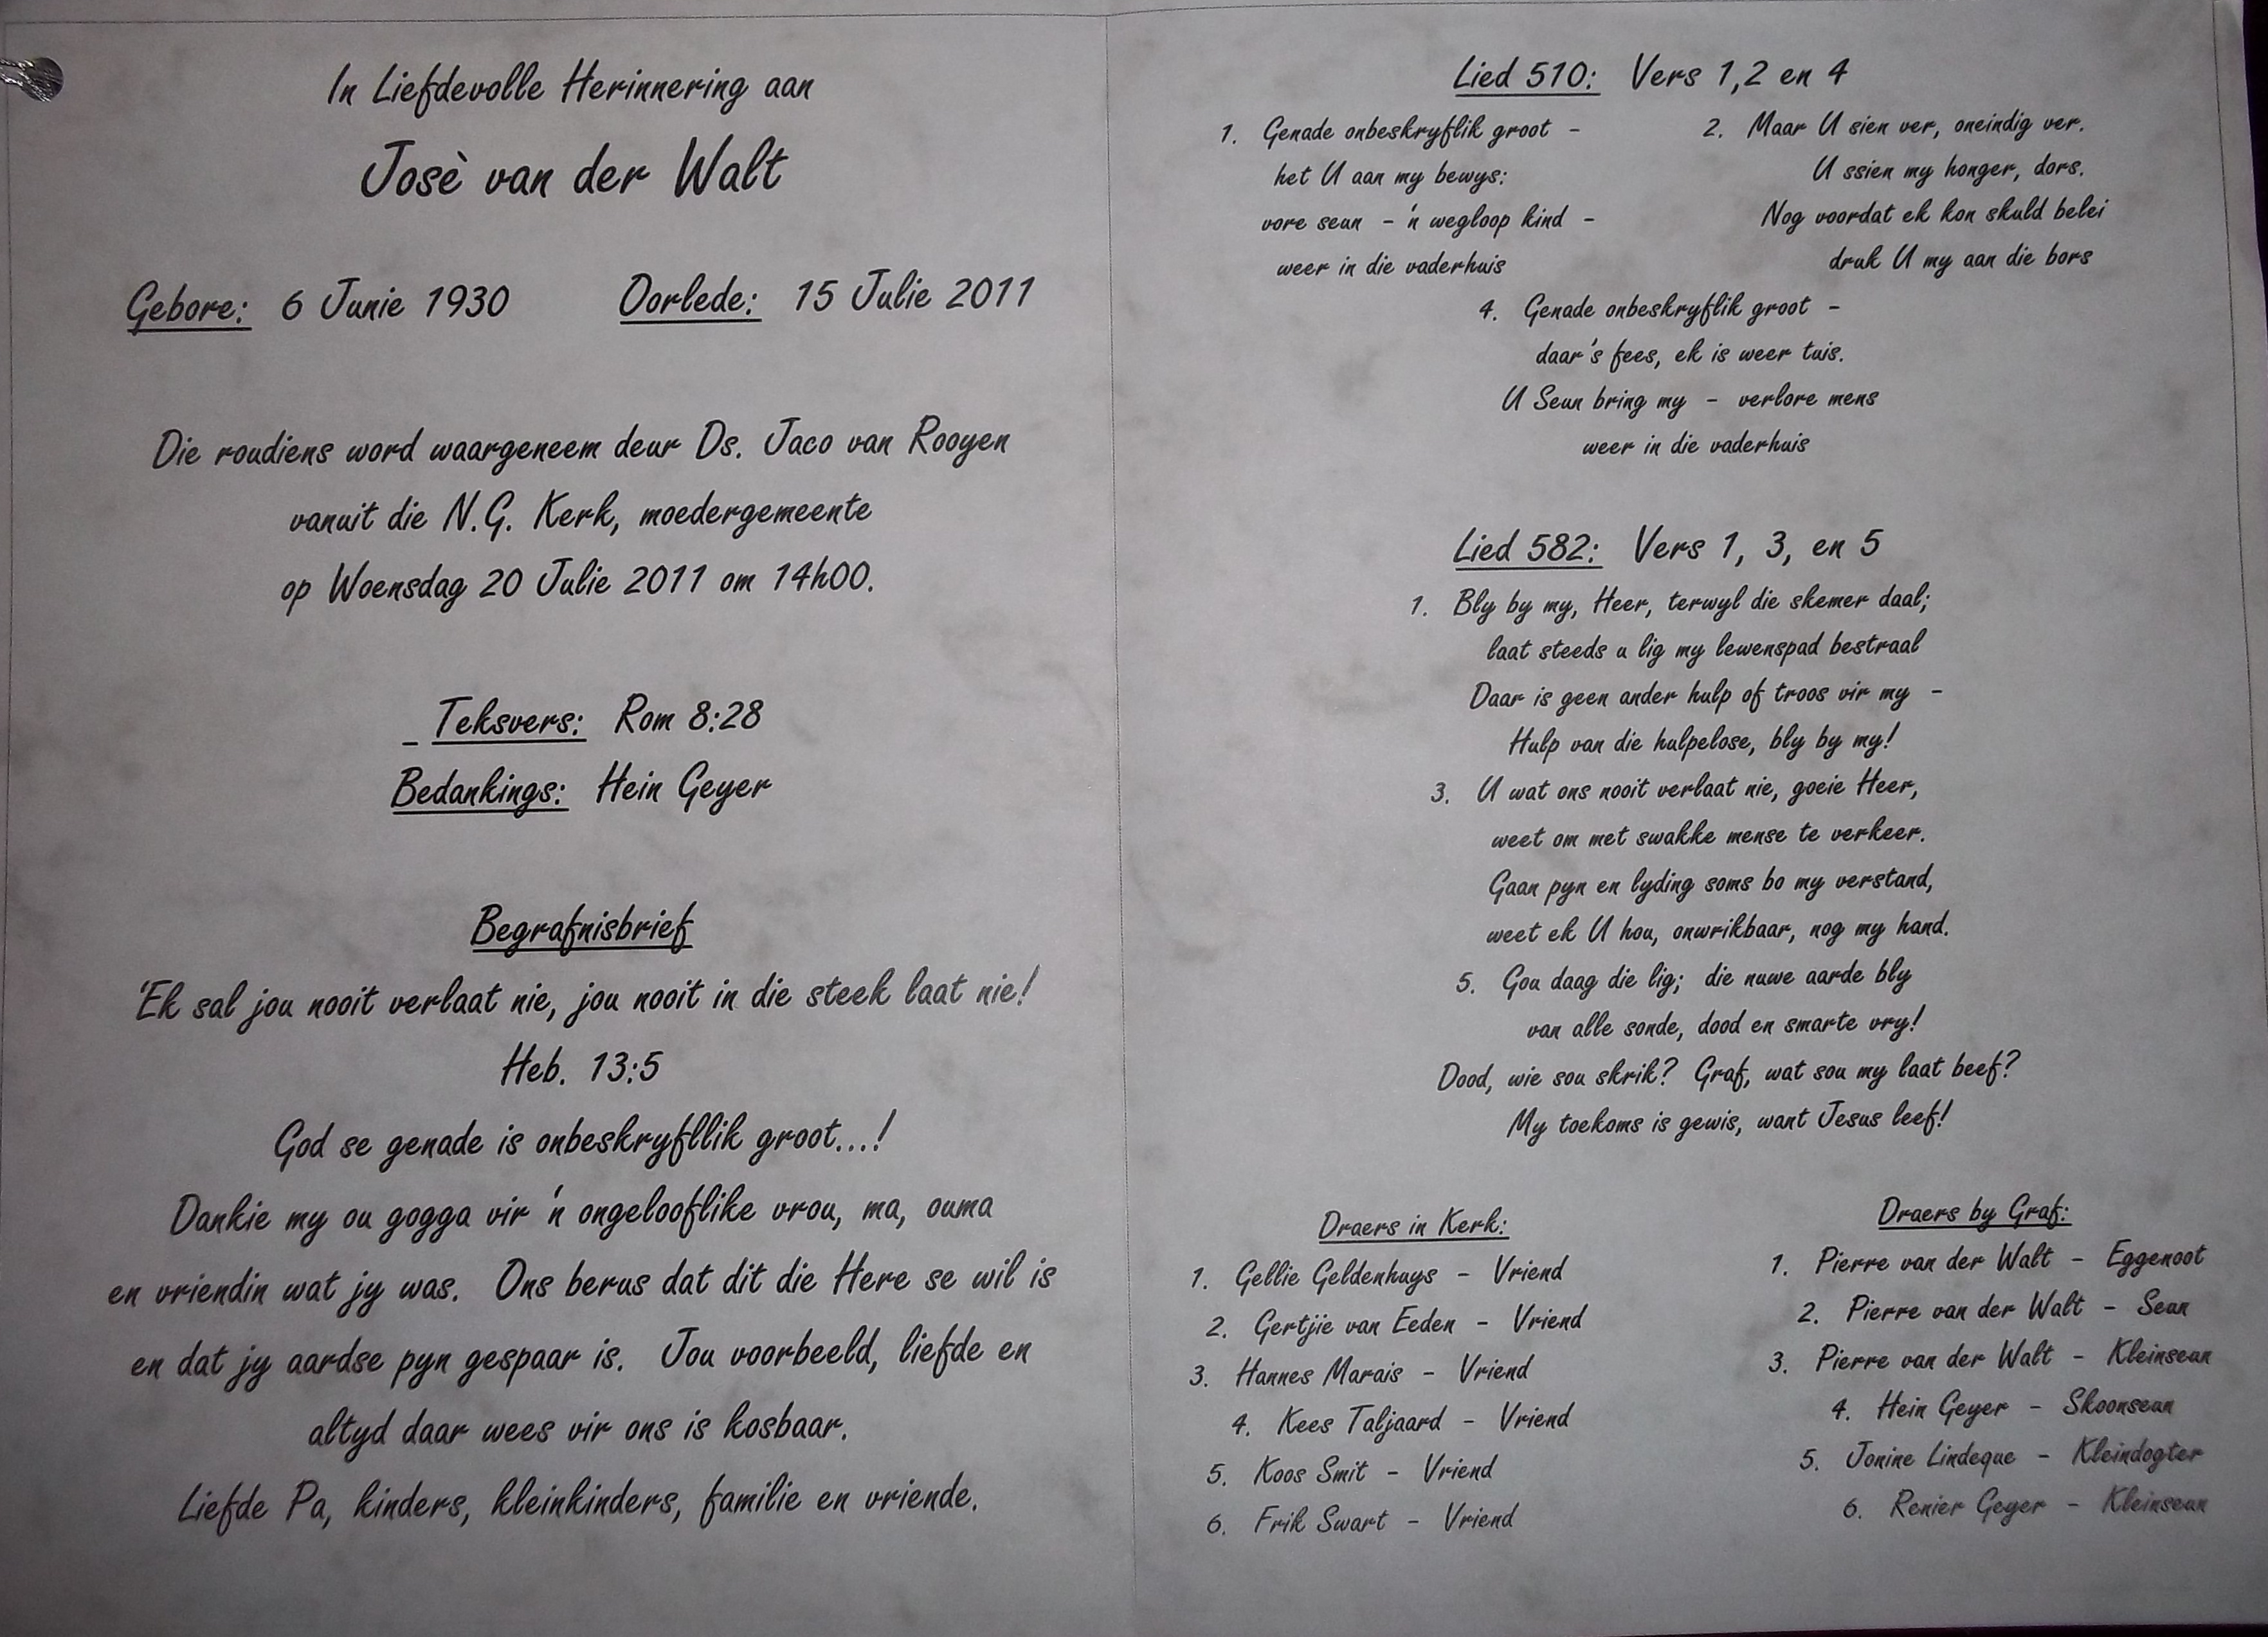 In Liefdevolle Herinnering aan
Josè van der Walt
Gebore: 6 Junie 1930 Oorlede: 15 Julie 2011
Die roudiens word waargeneem deur Ds. Jaco van Rooyen
vanuit die N.G. Kerk, moedergemeente
op Woensdag 20 Julie 2011 om 14h00.
_ Teksvers: Rom 8:28
Bedankings: Hein Geyer
Begrafnisbrief
'Ek sal jou nooit verlaat nie, jou nooit in die steek laat nie!
Heb. 13:5
God se genade is onbeskryfllik groot...!
Dankie my ou gogga vir 'n ongelooflike vrou, ma, ouma
en vriendin wat jy was. Ons berus dat dit die Here se wil is
en dat jy aardse pyn gespaar is. Jou voorbeeld, liefde en
altyd daar wees vir ons is kosbaar.
Liefde Pa, kinders, kleinkinders, familie en vriende.
Lied 510: Vers 1,2 en 4
1. Genade onbeskryflik groot -
het U aan my bewys:
vore seun - 'n wegloop kind -
weer in die vaderhuis
2. Maar U sien ver, oneindig ver.
U ssien my honger, dors.
Nog voordat ek kon skuld belei
druk U my aan die bors
4. Genade onbeskryflik groot -
daar's fees, ek is weer tuis.
U Seun bring my - verlore mens
weer in die vaderhuis
Lied 582: Vers 1, 3, en 5
1. Bly by my, Heer, terwyl die skemer daal;
laat steeds u lig my lewenspad bestraal
Daar is geen ander hulp of troos vir my -
Hulp van die hulpelose, bly by my!
3. U wat ons nooit verlaat nie, goeie Heer,
weet om met swakke mense te verkeer.
Gaan pyn en lyding soms bo my verstand,
weet ek U hou, onwrikbaar, nog my hand.
5. Gou daag die lig; die nuwe aarde bly
van alle sonde, dood en smarte vry!
Dood, wie sou skrik? Graf, wat sou my laat beef?
My toekoms is gewis, want Jesus leef!
Draers in Kerk:
1. Gellie Geldenhuys - Vriend
2. Gertjie van Eeden - Vriend
3. Hannes Marais - Vriend
4. Kees Taljaard - Vriend
5. Koos Smit - Vriend
6. Frik Swart - Vriend
Draers by Graf:
1. Pierre van der Walt - Eggenoot
2. Pierre van der Walt - Seun
3. Pierre van der Walt - Kleinseun
4. Hein Geyer - Skoonseun
5. Jonine Lindeque - Kleindogter
6. Renier Geyer - Kleinseun